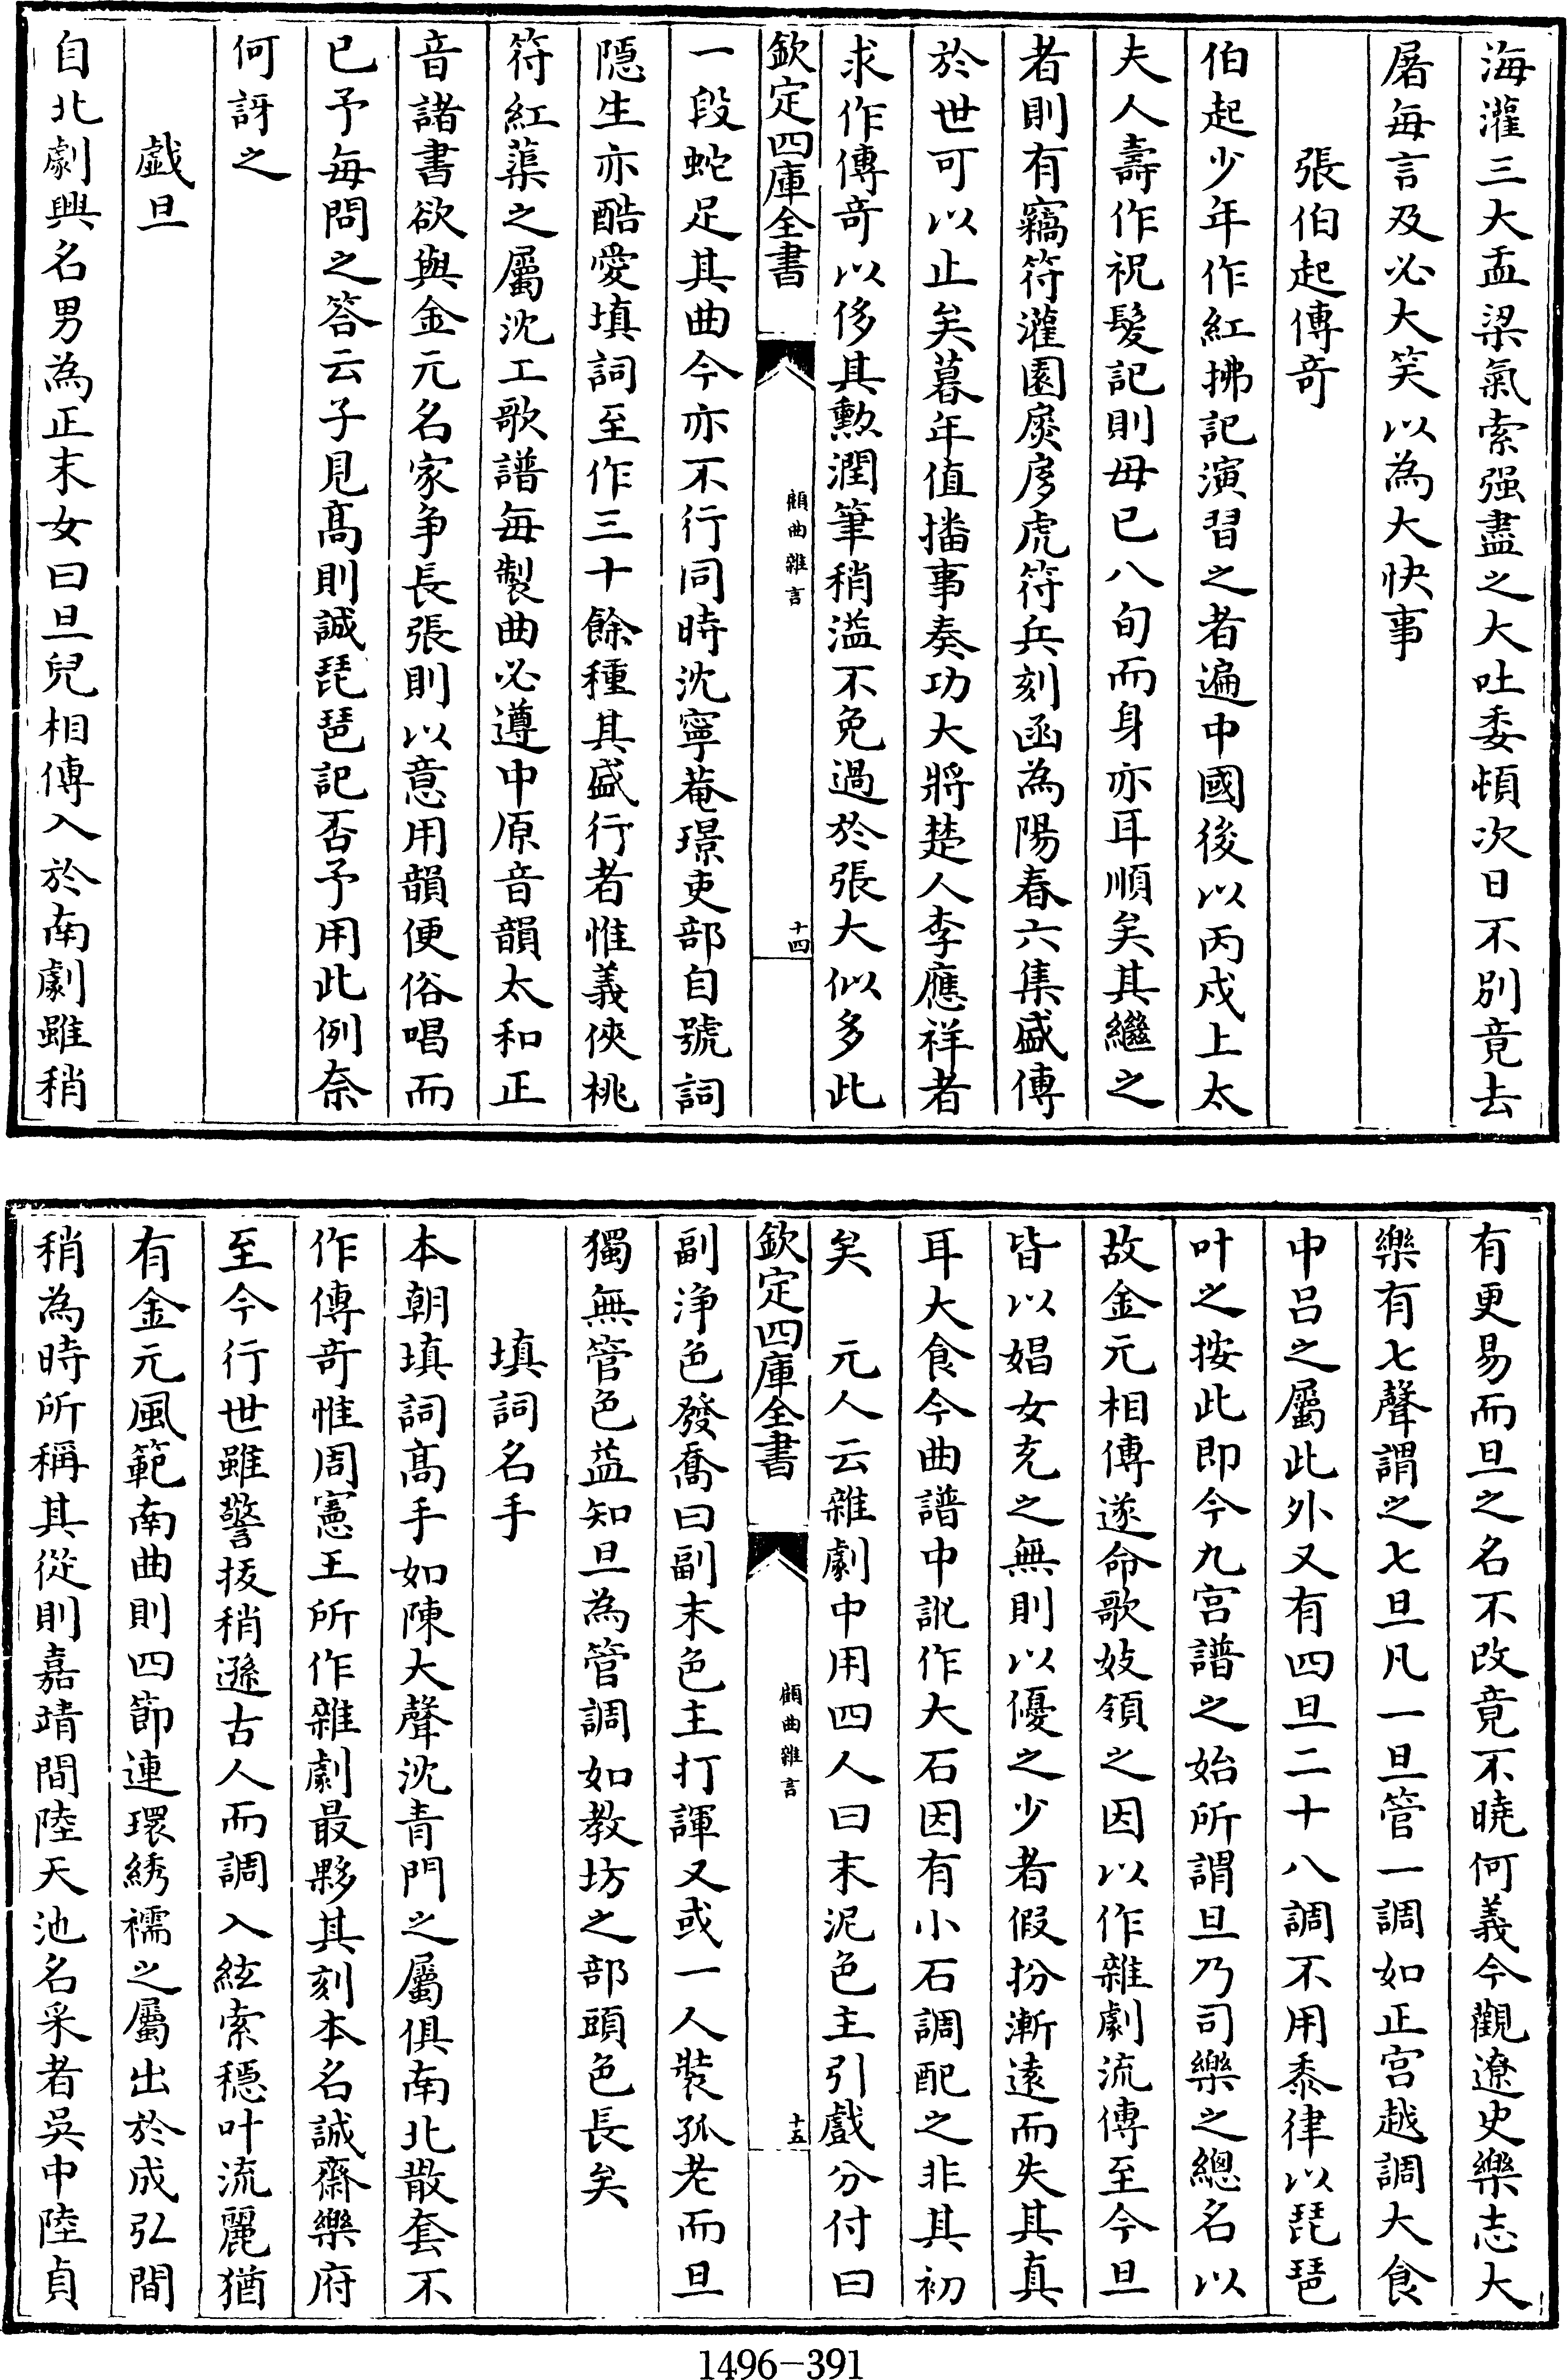 海灌三大盂梁氣索强盡之大吐委頓次日不别竟去
屠每言及必大笑以為大快事
張伯起傳奇
伯起少年作紅拂記演習之者遍中國後以丙戌上太
夫人壽作祝髮記則毋已八旬而身亦耳順矣其繼之
者則有竊符灌園扊扅虎符兵刻函為陽春六集盛傳
於世可以止矣暮年值播事奏功大將楚人李應祥者
求作傳奇以侈其勲潤筆稍溢不免過於張大似多此
欽定四庫全書
顧曲雜言
十四
一段蛇足其曲今亦不行同時沈寧菴璟吏部自號詞
隱生亦酷愛填詞至作三十餘種其盛行者惟義俠桃
符紅蕖之屬沈工歌譜每製曲必遵中原音韻太和正
音諸書欲與金元名家争長張則以意用韻便俗唱而
已予每問之答云子見髙則誠琵琶記否予用此例奈
何訝之
戯旦
自北劇興名男為正末女曰旦兒相傳入於南劇雖稍
有更易而旦之名不改竟不曉何義今觀遼史樂志大
樂有七聲謂之七旦凡一旦管一調如正宫越調大食
中吕之屬此外又有四旦二十八調不用黍律以琵琶
叶之按此即今九宫譜之始所謂旦乃司樂之總名以
故金元相傳遂命歌妓領之因以作雜劇流傳至今旦
皆以娼女充之無則以優之少者假扮漸遠而失其真
耳大食今曲譜中訛作大石因有小石調配之非其初
矣　元人云雜劇中用四人曰末泥色主引戲分付曰
欽定四庫全書
顧曲雜言
十五
副浄色發喬曰副末色主打諢又或一人裝孤老而旦
獨無管色益知旦為管調如教坊之部頭色長矣
填詞名手
本朝填詞髙手如陳大聲沈青門之屬俱南北散套不
作傳奇惟周憲王所作雜劇最夥其刻本名誠齋樂府
至今行世雖警拔稍遜古人而調入絃索穩叶流麗猶
有金元風範南曲則四節連環綉襦之屬出於成弘間
稍為時所稱其從則嘉靖間陸天池名采者吳中陸貞
1496-391